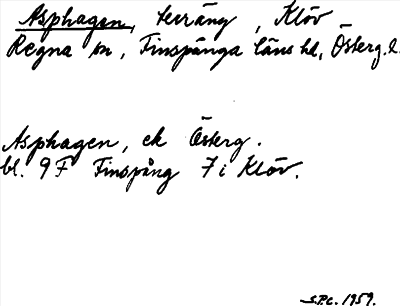 Asphagen, terräng, Klöv
Regna sn, Finspånga läns hd, Österg. l.
Asphagen, ek Österg.
bl. 9F Finspång 7i Klöv.
S.P.C. 1959.